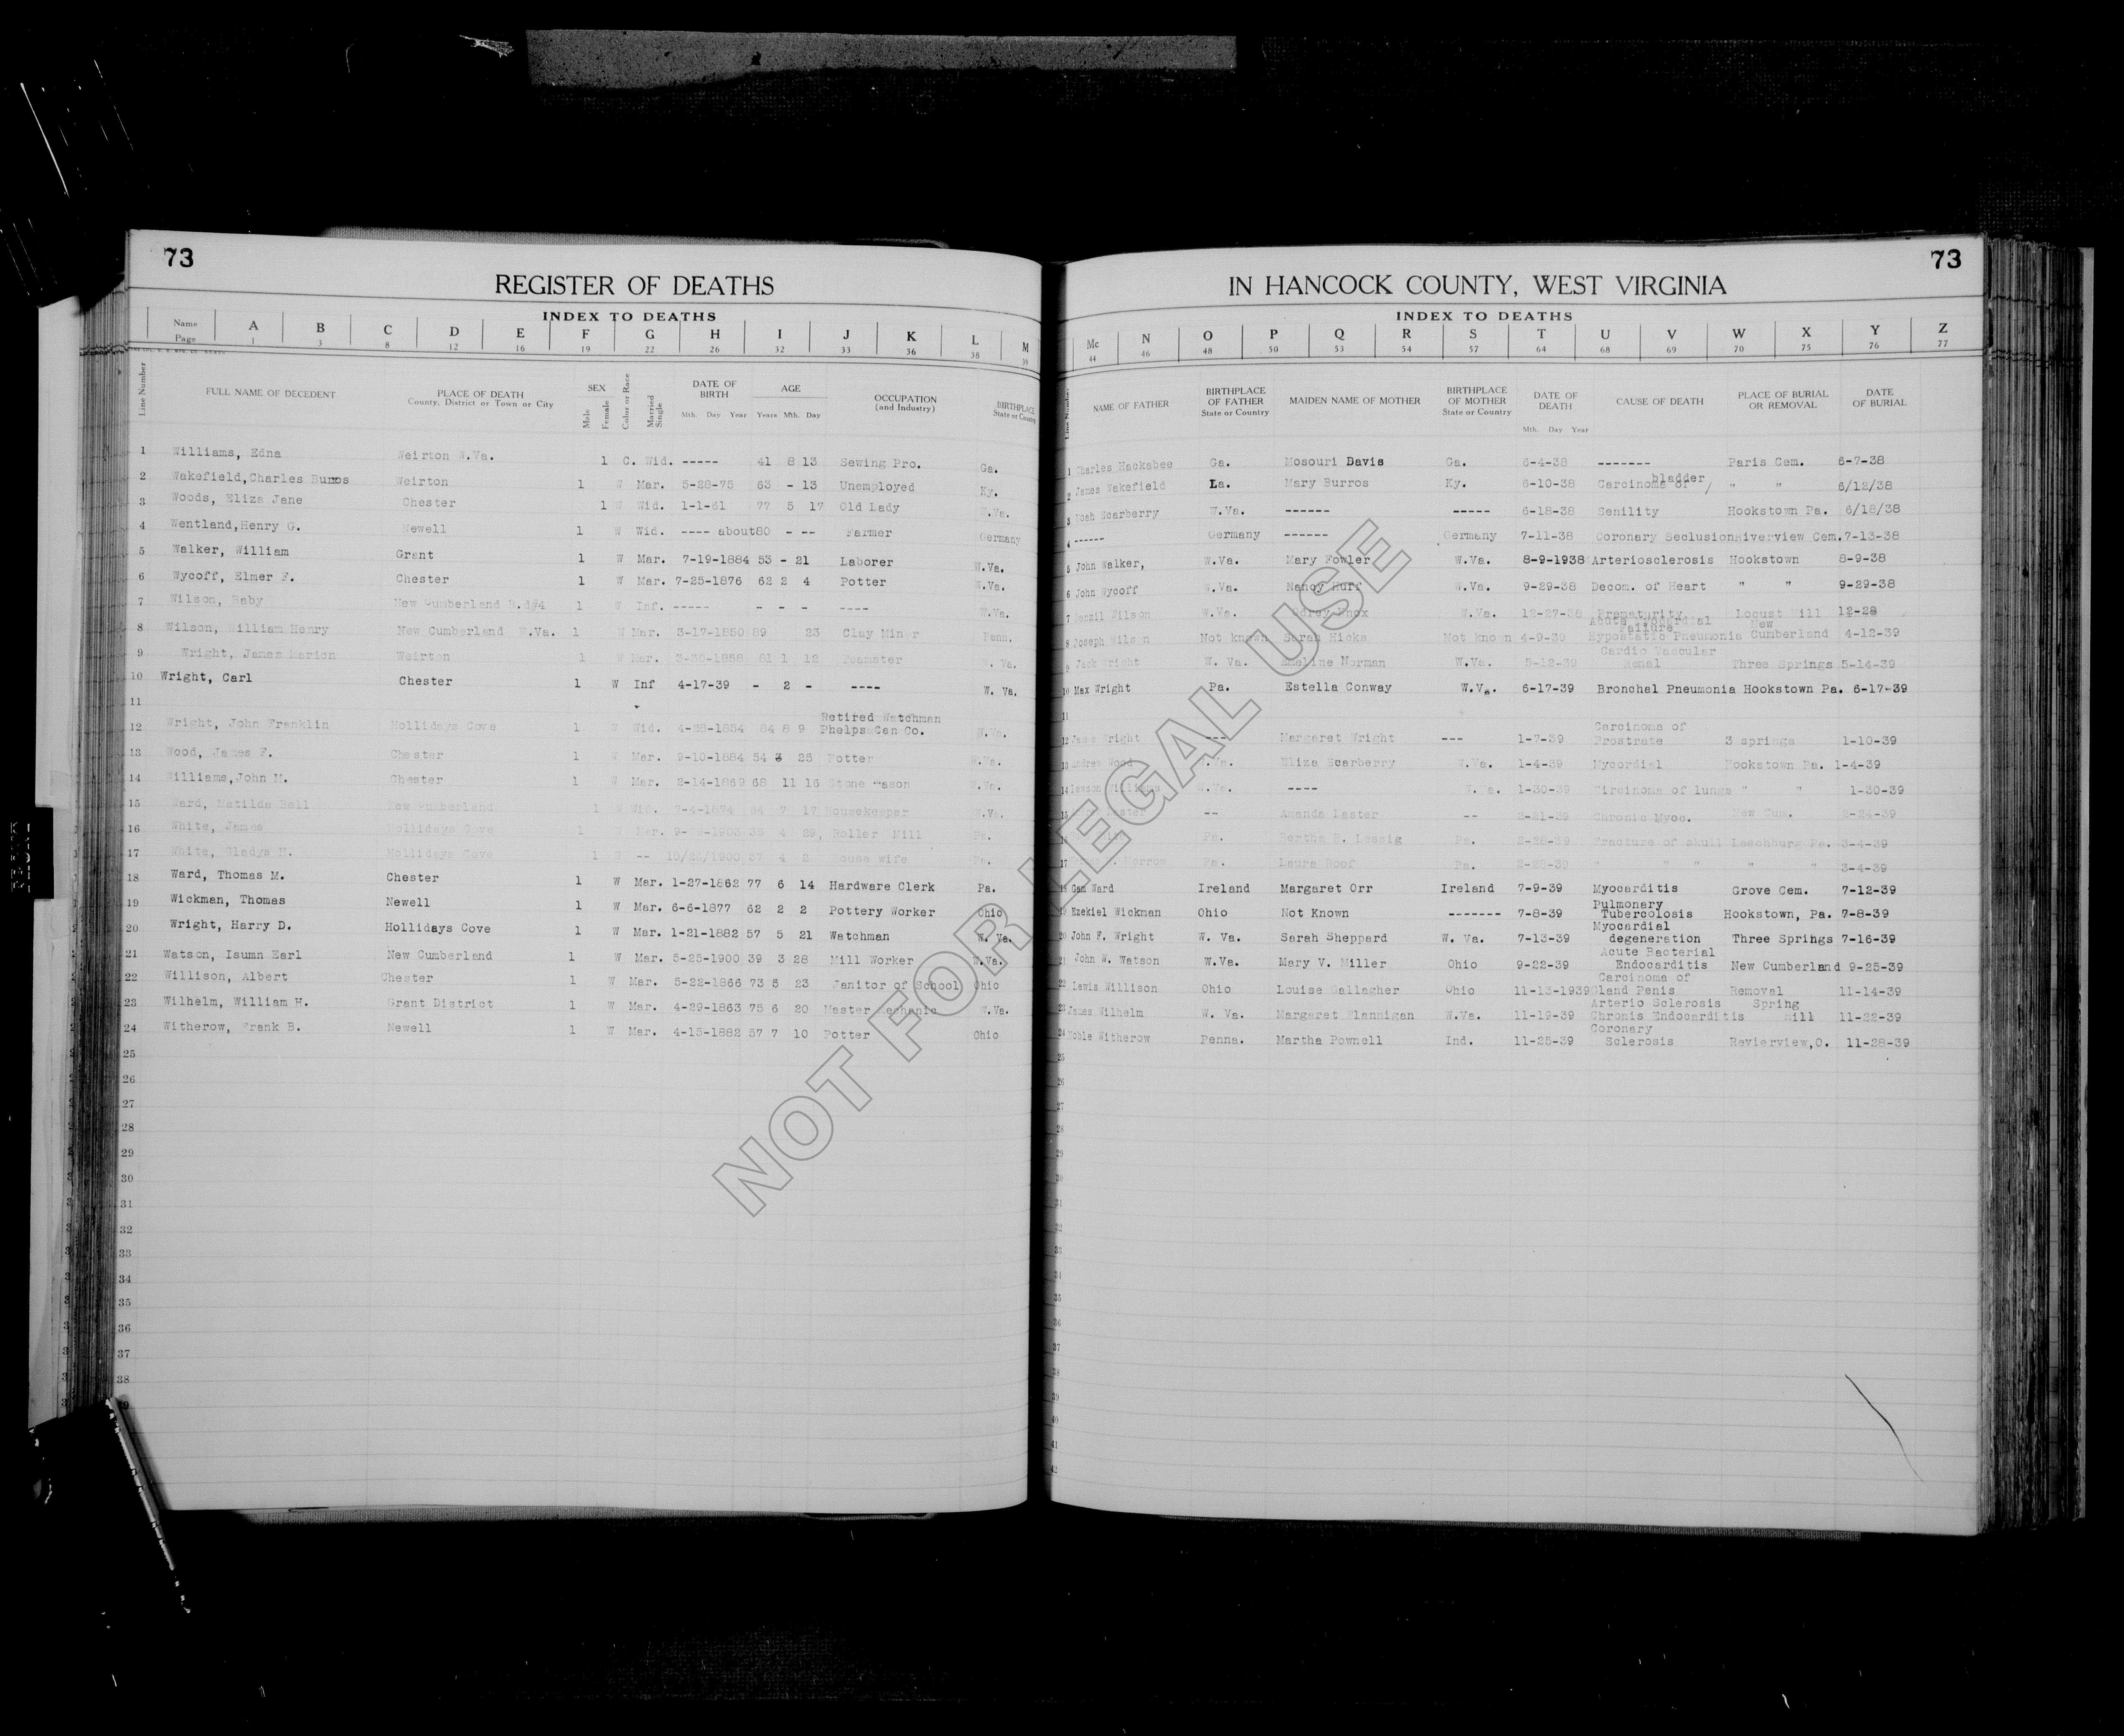 73
REGISTER OF DEATHS
INDEX TO DEATHS
Name A B C D E F G H I J K L M
Page 1 3 8 12 16 19 22 26 32 33 36 38 39
Line Number FULL NAME OF DECEDENT PLACE OF DEATH County, District or Town or City SEX Male Female Color or Race Married Single DATE OF BIRTH Mth. Day Year AGE Years Mth. Day OCCUPATION (and Industry) BIRTHPLACE State or Country
1 Williams, Edna Weirton W.Va. 1 C. Wid. ----- 41 8 13 Sewing Pro. Ga.
2 Wakefield,Charles Weirton 1 W Mar. 5-28-75 63 - 13 Unemployed Ky.
3 Woods, Eliza Jane Chester 1 W Wid. 1-1-61 77 5 17 Old Lady W.Va.
4 Wentland,Henry G. Newell 1 W Wid. ---- about80 - -- Farmer Germany
5 Walker, William Grant 1 W Mar. 7-19-1884 53 - 21 Laborer W.Va.
6 Wycoff, Elmer F. Chester 1 W Mar. 7-25-1876 62 2 4 Potter W.Va.
7 Wilson, Baby New Cumberland R.d#4 1 W Inf. ----- - - - ---- W.Va.
8 Wilson, William Henry New Cumberland W.Va. 1 W Mar. 3-17-1850 89 23 Clay Miner Penn.
9 Wright, James Marion Weirton 1 W Mar. 3-30-1858 81 1 12 Teamster W. Va.
10 Wright, Carl Chester 1 W Inf 4-17-39 - 2 - ---- W. Va.
11
12 Wright, John Franklin Hollidays Cove 1 W Wid. 4-28-1854 84 8 9 Retired Watchman Phelps Can Co. W.Va.
13 Wood, James F. Chester 1 W Mar. 9-10-1884 54 3 25 Potter W.Va.
14 Williams,John M. Chester 1 W Mar. 2-14-1869 68 11 16 Stone Mason W.Va.
15 Ward, Matilda Bell New Cumberland 1 W Wid. 7-4-1874 64 7 17 Housekeeper W.Va.
16 White, James Hollidays Cove 1 W Mar. 35 4 29, Roller Mill Pa.
17 White, Gladys H. Hollidays Cove 1 W -- 37 4 2 House wife Pa.
18 Ward, Thomas M. Chester 1 W Mar. 1-27-1862 77 6 14 Hardware Clerk Pa.
19 Wickman, Thomas Newell 1 W Mar. 6-6-1877 62 2 2 Pottery Worker Ohio
20 Wright, Harry D. Hollidays Cove 1 W Mar. 1-21-1882 57 5 21 Watchman W. Va.
21 Watson, Isumn Earl New Cumberland 1 W Mar. 5-25-1900 39 3 28 Mill Worker W.Va.
22 Willison, Albert Chester 1 W Mar. 5-22-1866 73 5 23 Janitor of School Ohio
23 Wilhelm, William H. Grant District 1 W Mar. 4-29-1863 75 6 20 Master Mechanic W.Va.
24 Witherow, Frank B. Newell 1 W Mar. 4-15-1882 57 7 10 Potter Ohio
25
26
27
28
29
30
31
32
33
34
35
36
37
38
73
IN HANCOCK COUNTY, WEST VIRGINIA
INDEX TO DEATHS
Mc N O P Q R S T U V W X Y Z
44 46 48 50 53 54 57 64 68 69 70 75 76 77
Line Number NAME OF FATHER BIRTHPLACE OF FATHER State or Country MAIDEN NAME OF MOTHER BIRTHPLACE OF MOTHER State or Country DATE OF DEATH Mth. Day Year CAUSE OF DEATH PLACE OF BURIAL OR REMOVAL DATE OF BURIAL
1 Charles Hackabee Ga. Mosouri Davis Ga. 6-4-38 ------- Paris Cem. 6-7-38
2 James Wakefield La. Mary Burros Ky. 6-10-38 Carcinoma of / bladder " " 6/12/38
3 Noah Scarberry W.Va. ------ ----- 6-18-38 Senility Hookstown Pa. 6/18/38
4 ------ Germany ------ Germany 7-11-38 Coronary Seclusion Riverview Cem. 7-13-38
5 John Walker, W.Va. Mary Fowler W.Va. 8-9-1938 Arteriosclerosis Hookstown 8-9-38
6 John Wycoff W.Va. Nancy Huff W.Va. 9-29-38 Decom. of Heart " " 9-29-38
7 Denzil Wilson W.Va. Knox W.Va. 12-27-38 Prematurity Locust Hill 12-28
8 Joseph Wilson Not known Sarah Hicks Not known 4-9-39 Acute Myocardial Failure Hypostatic Pneumonia New Cumberland 4-12-39
9 Jack Wright W. Va. Emeline Norman W.Va. 5-12-39 Cardio Vascular Renal Three Springs 5-14-39
10 Max Wright Pa. Estella Conway W.Va. 6-17-39 Bronchal Pneumonia Hookstown Pa. 6-17-39
11
12 James Wright --- Margaret Wright --- 1-7-39 Carcinoma of Prostrate 3 springs 1-10-39
13 Andrew Wood W.Va. Eliza Scarberry W.Va. 1-4-39 Mycordial Hookstown Pa. 1-4-39
14 Williams W.Va. ---- W.Va. 1-30-39 of lungs " " 1-30-39
15 -- Amanda Laster -- 2-21-39 Chronic Myoc. New Cum. 2-24-39
16 Pa. Bertha Pa. 2-28-39 Fracture of skull Leechburg Pa. 3-4-39
17 Morrow Pa. Laura Roof Pa. 2-28-39 " " " " " 3-4-39
18 Gam Ward Ireland Margaret Orr Ireland 7-9-39 Myocarditis Grove Cem. 7-12-39
19 Ezekiel Wickman Ohio Not Known ------- 7-8-39 Pulmonary Tubercolosis Hookstown, Pa. 7-8-39
20 John F. Wright W. Va. Sarah Sheppard W. Va. 7-13-39 Myocardial degeneration Three Springs 7-16-39
21 John W. Watson W.Va. Mary V. Miller Ohio 9-22-39 Acute Bacterial Endocarditis New Cumberland 9-25-39
22 Lewis Willison Ohio Louise Gallagher Ohio 11-13-1939 Carcinoma of Gland Penis Removal 11-14-39
23 James Wilhelm W. Va. Margaret Flannigan W.Va. 11-19-39 Arterio Sclerosis Chronis Endocarditis Spring Hill 11-22-39
24 Noble Witherow Penna. Martha Pownell Ind. 11-25-39 Coronary Sclerosis Revierview,O. 11-28-39
25
26
27
28
29
30
31
32
33
34
35
36
37
38
39
40
41
42
NOT FOR LEGAL USE